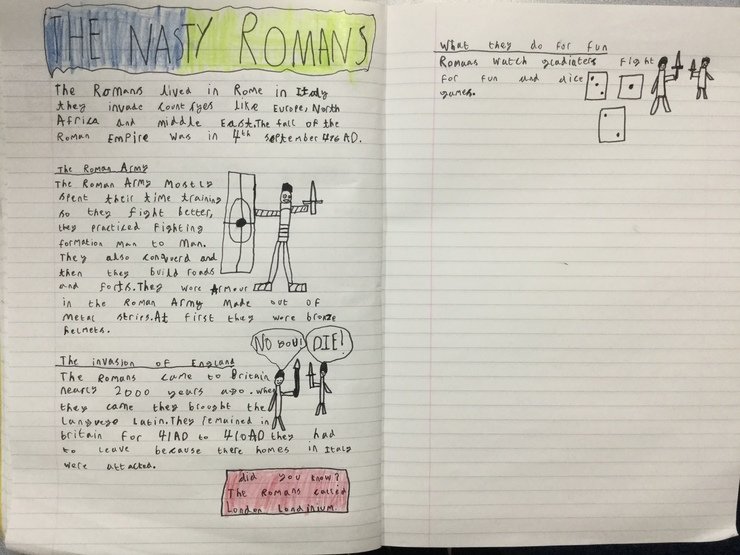 THE NASTY ROMANS
The Romans lived in Rome in Italy
they invade countryes like Europe, North
Africa and middle East. The fall of the
Roman EmPire was in 4th september 476 AD.
The Roman Army
The Roman Army Mostly
spent their time training
so they fight better,
they practiced Fighting
formation man to Man.
They also conquerd and
then they build roads
and forts. They wore Armour
in the Roman Army Made out of
metal strips. At first they wore bronze
helmets.
NO YOU!
DIE!
The invasion of England
The Romans came to Britain
nearly 2000 years ago. When
they came they brought the
Languege Latin. They remained in
britain for 41AD to 410AD they had
to leave because there homes in Italy
were attacked.
did you know?
The Romans called
London Londinium.
What they do for fun
Romans watch gladinters fight
for fun and dice
games.